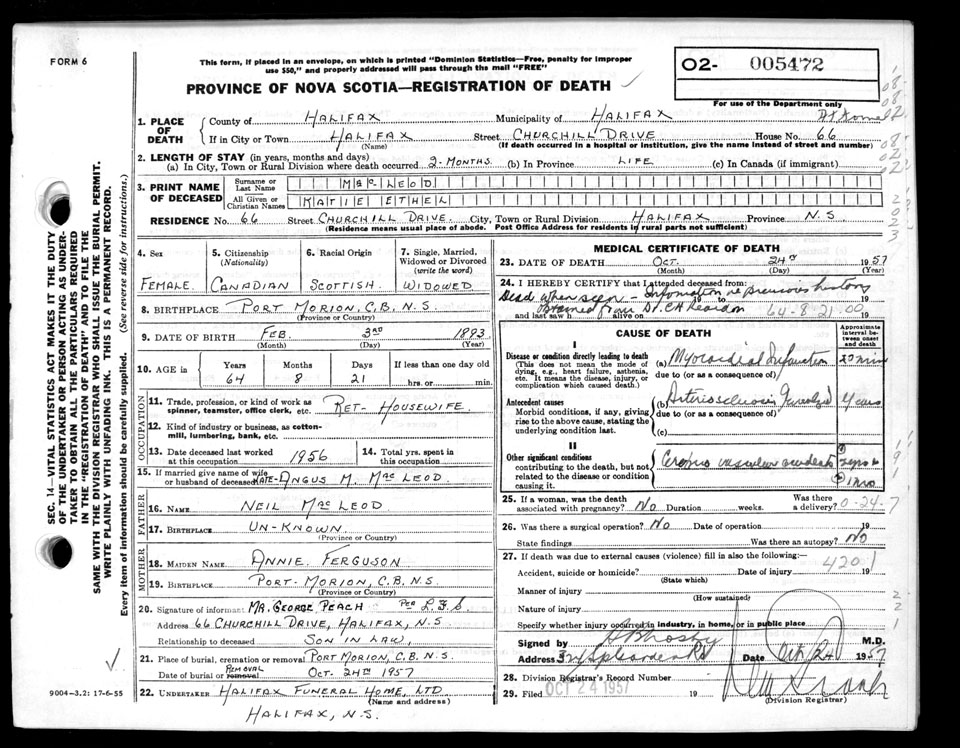 FORM 6
This form, if placed in an envelope, on which is printed "Dominion Statistics—Free, penalty for improper
use $50," and properly addressed will pass through the mail "FREE"
PROVINCE OF NOVA SCOTIA—REGISTRATION OF DEATH
02- 005472
For use of the Department only
1. PLACE OF DEATH
County of HALIFAX Municipality of HALIFAX
If in City or Town HALIFAX Street CHURCHILL DRIVE House No. 66
(Name) (If death occurred in a hospital or institution, give the name instead of street and number)
2. LENGTH OF STAY (in years, months and days)
(a) In City, Town or Rural Division where death occurred 2-MONTHS (b) In Province LIFE (c) In Canada (if immigrant)
3. PRINT NAME OF DECEASED
Surname or Last Name MacLEOD
All Given or Christian Names KATIE ETHEL
RESIDENCE No. 66 Street CHURCHILL DRIVE. City, Town or Rural Division HALIFAX Province N.S
(Residence means usual place of abode. Post Office Address for residents in rural parts not sufficient)
4. Sex FEMALE
5. Citizenship (Nationality) CANADIAN
6. Racial Origin SCOTTISH
7. Single, Married, Widowed or Divorced (write the word) WIDOWED
8. BIRTHPLACE PORT MORION, C.B, N.S
(Province or Country)
9. DATE OF BIRTH FEB. 3RD 1893
(Month) (Day) (Year)
10. AGE in Years Months Days If less than one day old
64 8 21 hrs. or min.
OCCUPATION
11. Trade, profession, or kind of work as
spinner, teamster, office clerk, etc. RET- HOUSEWIFE
12. Kind of industry or business, as cotton-
mill, lumbering, bank, etc.
13. Date deceased last worked
at this occupation 1956
14. Total yrs. spent in
this occupation
15. If married give name of wife
or husband of deceased LATE-ANGUS M. MacLEOD
FATHER
16. NAME NEIL MacLEOD
17. BIRTHPLACE UN-KNOWN
(Province or Country)
MOTHER
18. MAIDEN NAME ANNIE FERGUSON
19. BIRTHPLACE PORT-MORION, C.B, N.S
(Province or Country)
20. Signature of informant MR. GEORGE PEACH PER L.F.S.
Address 66 CHURCHILL DRIVE, HALIFAX, N.S
Relationship to deceased SON IN LAW,
21. Place of burial, cremation or removal PORT MORION, C.B. N.S
REMOVAL
Date of burial or removal OCT. 24TH 1957
22. UNDERTAKER HALIFAX FUNERAL HOME, LTD
(Name and address)
HALIFAX, N.S.
MEDICAL CERTIFICATE OF DEATH
23. DATE OF DEATH OCT. 24TH 1957
(Month) (Day) (Year)
24. I HEREBY CERTIFY that I attended deceased from:
Dead when seen - Information re previous history
19 to 19
obtained from Dr. C H Reardon
and last saw h alive on 19
64-8-21-00
CAUSE OF DEATH
Approximate interval between onset and death
I
Disease or condition directly leading to death
(This does not mean the mode of
dying, e.g., heart failure, asthenia,
etc. It means the disease, injury, or
complication which caused death.)
(a) Myocardial Infarction 20 mins
due to (or as a consequence of)
Antecedent causes
Morbid conditions, if any, giving
rise to the above cause, stating the
underlying condition last.
(b) Arteriosclerosis Generalized years
due to (or as a consequence of)
(c)
II
Other significant conditions
contributing to the death, but not
related to the disease or condition
causing it.
vascular accident
25. If a woman, was the death
associated with pregnancy? No Duration weeks. Was there a delivery?
0-24-7
26. Was there a surgical operation? No Date of operation 19
State findings Was there an autopsy? No
27. If death was due to external causes (violence) fill in also the following:—
Accident, suicide or homicide? Date of injury 19
(State which)
4201
Manner of injury
(How sustained)
Nature of injury
Specify whether injury occurred in industry, in home, or in public place
Signed by M.D.
Address Date Oct 24 1957
28. Division Registrar's Record Number
29. Filed OCT 24 1957 19
(Division Registrar)
SEC. 14—VITAL STATISTICS ACT MAKES IT THE DUTY
OF THE UNDERTAKER OR PERSON ACTING AS UNDER-
TAKER TO OBTAIN ALL THE PARTICULARS REQUIRED
IN THE "REGISTRATION OF DEATH" AND TO FILE THE
SAME WITH THE DIVISION REGISTRAR WHO SHALL ISSUE THE BURIAL PERMIT.
WRITE PLAINLY WITH UNFADING INK. THIS IS A PERMANENT RECORD.
Every item of information should be carefully supplied. (See reverse side for instructions.)
9004-3.2: 17-6-55